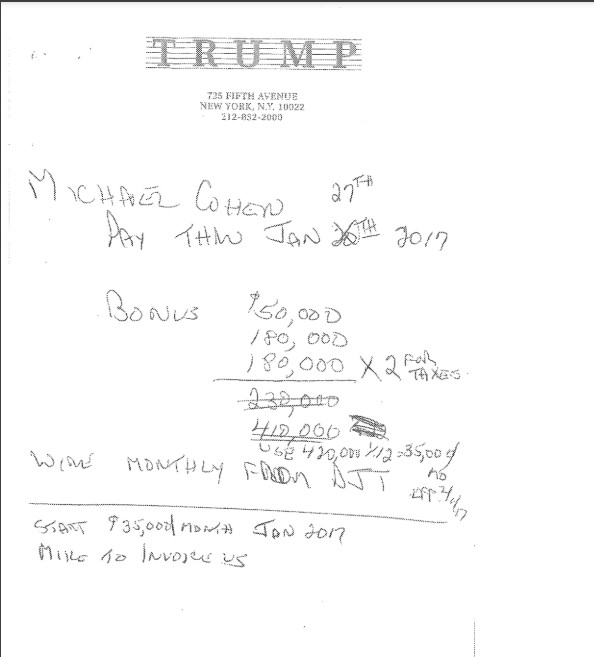 TRUMP
725 FIFTH AVENUE
NEW YORK, N.Y. 10022
212-832-2000
MICHAEL COHEN 27TH
PAY THRU JAN 2017
BONUS $50,000
180,000
180,000 X 2 FOR TAXES
230,000
410,000
USE 420,000 1/12 = 35,000/
MO
WIRE MONTHLY FROM DJT
START $35,000/MONTH JAN 2017
MIKE TO INVOICE US